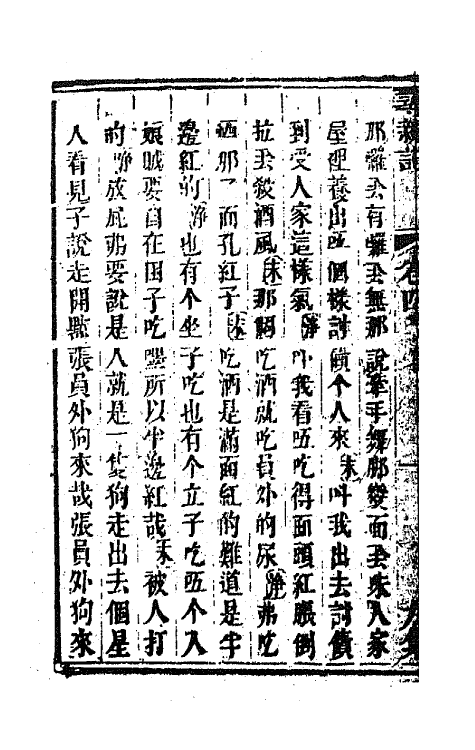 那囉厾有囉厾無那說牽手舞脚變面厾朱人家
屋裡養出個樣討債個人來末叫我出去討債
到受人家這樣氣淨我看吃得面頭紅脹倒
拉厾發酒風末那個吃酒就吃員外的尿淨弗吃
酒那了面孔紅子末吃酒是滿面紅的難道是半
邊紅的淨也有个坐子吃也有个立子吃个入
娘賊要自在困子吃所以半邊紅哉末被人打
的淨放屁弗要說是人就是一隻狗走出去個星
人看見子說走開點張員外狗來哉張員外狗來